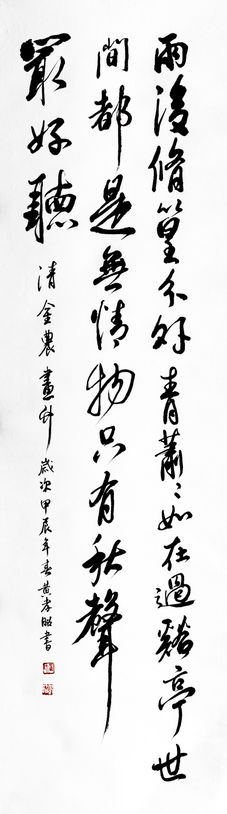 雨後脩篁分外青蕭蕭如在過谿亭世
間都是無情物只有秋聲
最好聽
清金農畫竹歲次甲辰年春黃孝昭書